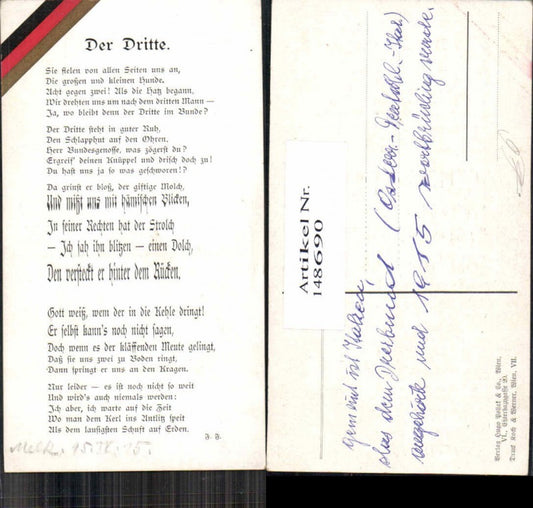 Der Dritte.
Sie fielen von allen Seiten uns an,
Die großen und kleinen Hunde.
Acht gegen zwei! Als die Hatz begann,
Wir drehten uns um nach dem dritten Mann —
Ja, wo bleibt denn der Dritte im Bunde?
Der Dritte steht in guter Ruh,
Den Schlapphut auf den Ohren.
Herr Bundesgenosse, was zögerst du?
Ergreif' deinen Knüppel und drisch doch zu!
Du hast uns ja so was geschworen!?
Da grinst er bloß, der giftige Molch,
Und mißt uns mit hämischen Blicken,
In seiner Rechten hat der Strolch
— Ich sah ihn blitzen — einen Dolch,
Den versteckt er hinter dem Rücken.
Gott weiß, wem der in die Kehle dringt!
Er selbst kann's noch nicht sagen,
Doch wenn es der kläffenden Meute gelingt,
Daß sie uns zwei zu Boden ringt,
Dann springt er uns an den Kragen.
Nur leider — es ist noch nicht so weit
Und wird's auch niemals werden:
Ich aber, ich warte auf die Zeit
Wo man dem Kerl ins Antlitz speit
Als dem lausigsten Schuft auf Erden.
F. F.
15. 15.
Artikel Nr.
148690
gemeint ist Italien,
das dem Dreibund (Österr.-Deutschl.-Ital.)
angehörte und 1915 wortbrüchig wurde.
Verlag Hugo Pollak & Co., Wien,
VI., Esterhazygasse
Druck Koch & Werner, Wien, VII.